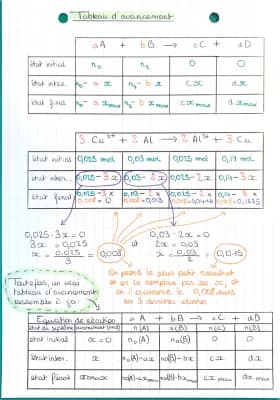 Tableau d'avancement
aA + bB → cC + dD
état initial n₀ n₁ 0 0
état inter. n₀- a x n₁- b x cx dx
état final n₀- a xmax n₁- b xmax cxmax dxmax
3 Cu²⁺ + 2 Al → 2 Al³⁺ + 3 Cu
état initial 0,025 mol 0,03 mol 0,025 mol 0,14 mol
état inter. 0,025-3x 0,03-2x 0,025-2x 0,14-3x
état final
0,025-3x=0 0,03-2x=0
3x=0,025 2x=0,03
x = 0,025/3 = 0,008 x = 0,03/2 = 0,015
On prend le plus petit résultat
et on le remplace par les x, et
Toutefois, un vrai
tableau d'avancement
ressemble à ça :
Equation de réaction aA + bB → cC + dD
état du système avancement (mol) n(A) n(B) n(C) n(D)
état initial x=0 n₀(A) n₀(B) 0 0
état inter. x n₀(A)-ax n₀(B)-bx cx dx
état final xmax n₀(A)-axmax n₀(B)-bxmax cxmax dxmax